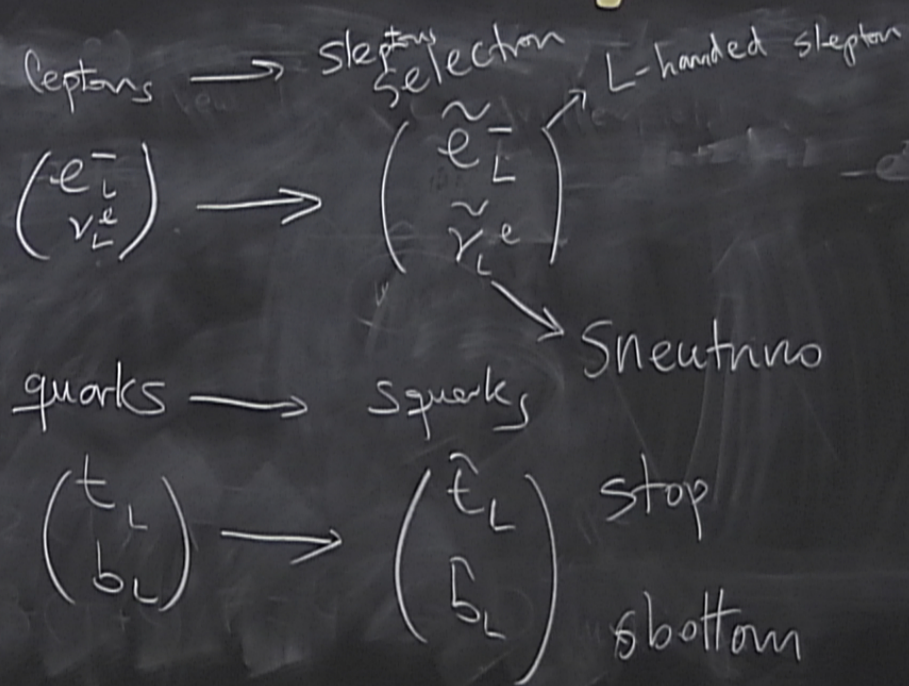 leptons → sleptons selectron L-handed slepton
(e⁻_L → (ẽ⁻_L
ν^e_L) ν̃_L^e)
Sneutrino
quarks → squarks
(t_L → (t̃_L stop
b_L) b̃_L) sbottom